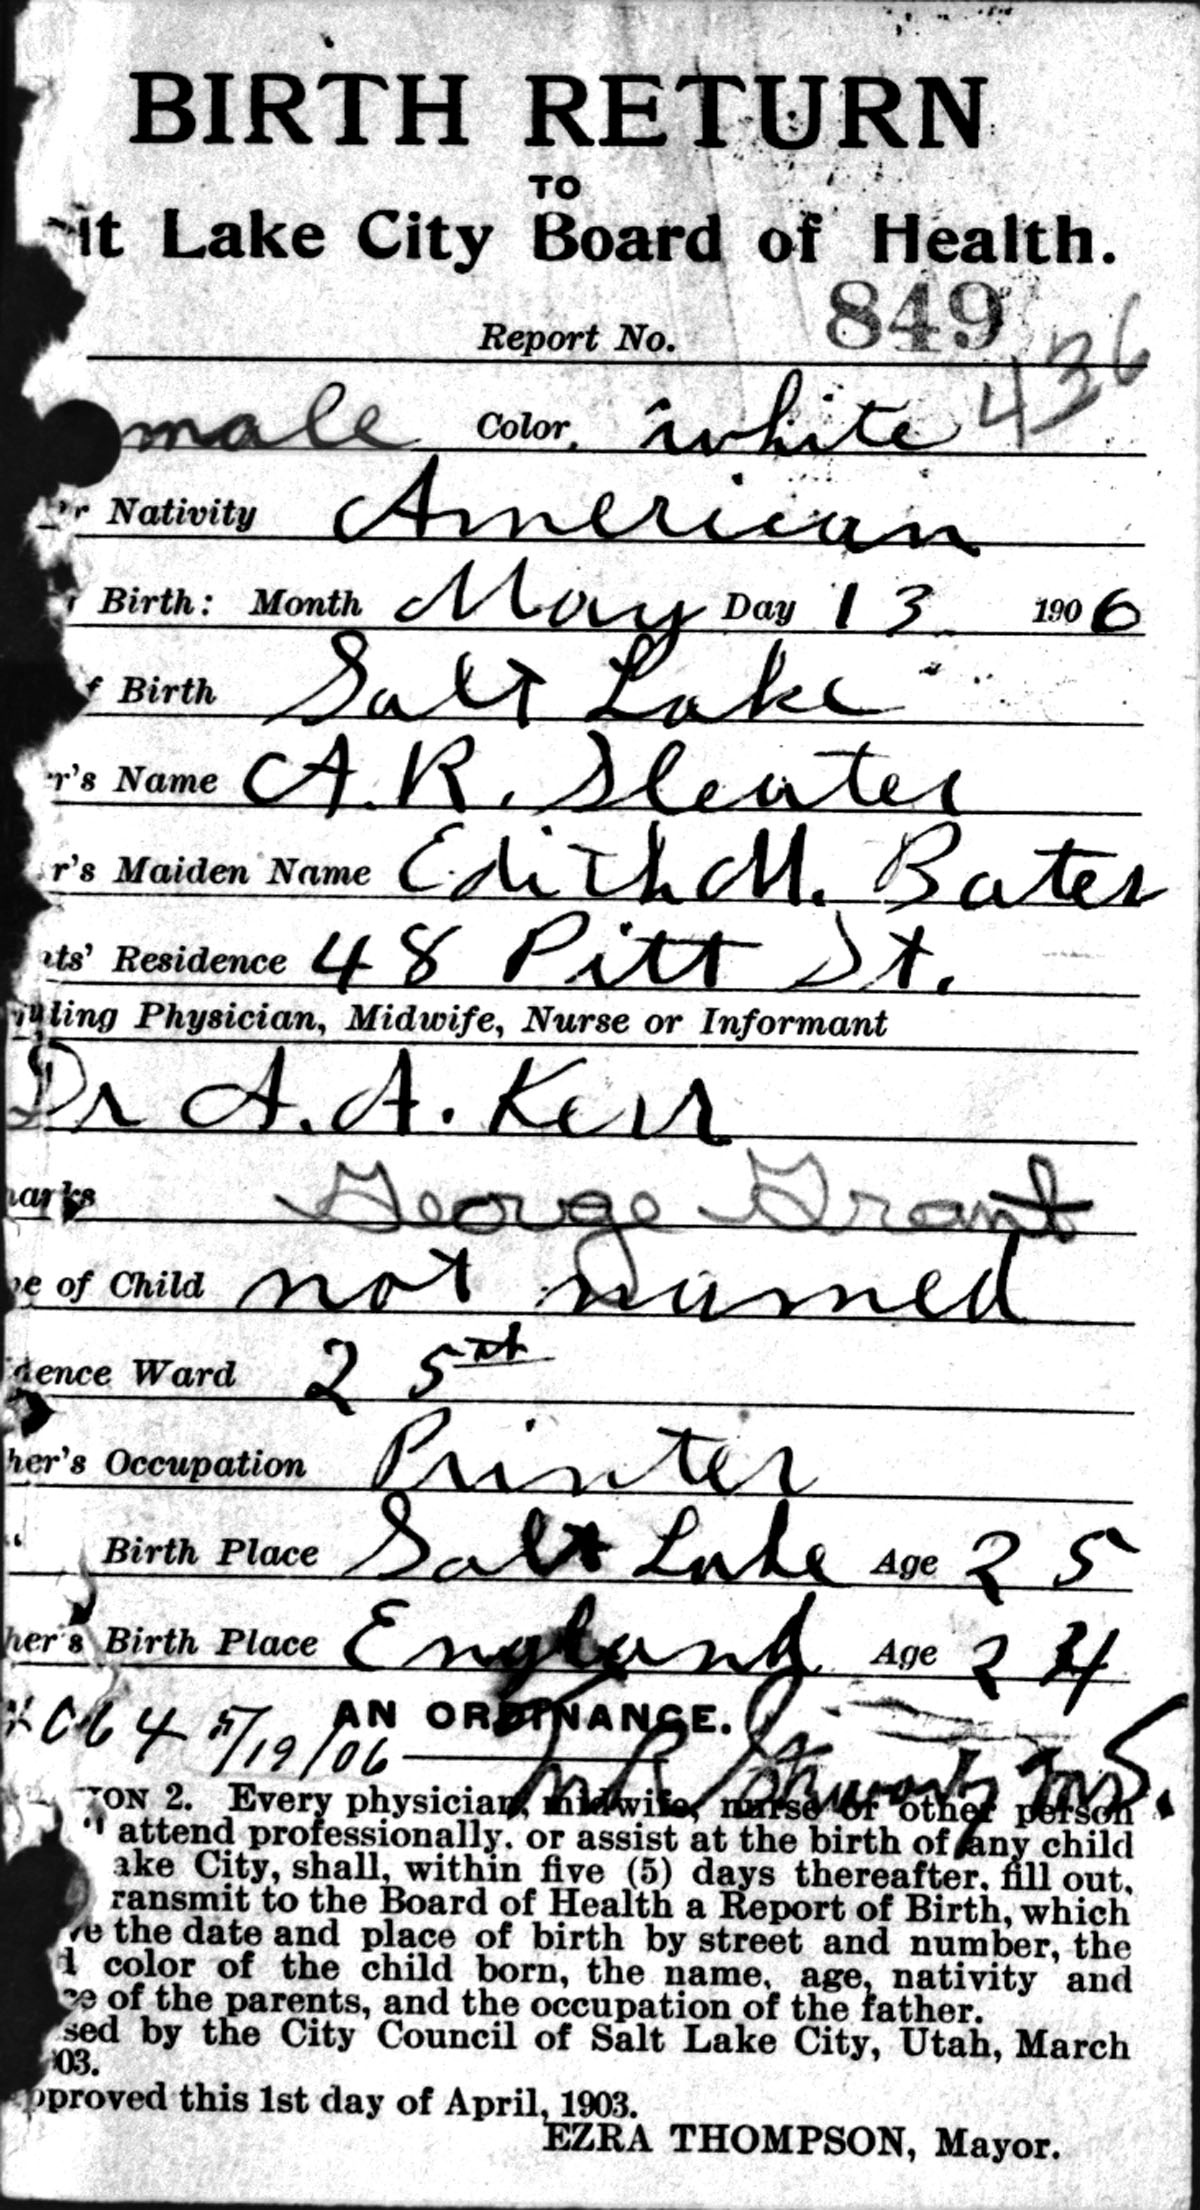 BIRTH RETURN
TO
lt Lake City Board of Health.
Report No. 849
436
male Color, white
r Nativity American
Birth: Month May Day 13 1906
f Birth Salt Lake
r's Name A. R. Sleater
r's Maiden Name Edith M. Bates
nts' Residence 48 Pitt St.
ding Physician, Midwife, Nurse or Informant
Dr A. A. Kerr
arks George Grant
e of Child not named
dence Ward 25th
her's Occupation Printer
" Birth Place Salt Lake Age 25
her's Birth Place England Age 24
AN ORDINANCE.
064 5/19/06
ON 2. Every physician, midwife, nurse or other person
attend professionally, or assist at the birth of any child
ake City, shall, within five (5) days thereafter, fill out,
ransmit to the Board of Health a Report of Birth, which
ve the date and place of birth by street and number, the
d color of the child born, the name, age, nativity and
ce of the parents, and the occupation of the father.
sed by the City Council of Salt Lake City, Utah, March
03.
pproved this 1st day of April, 1903.
EZRA THOMPSON, Mayor.